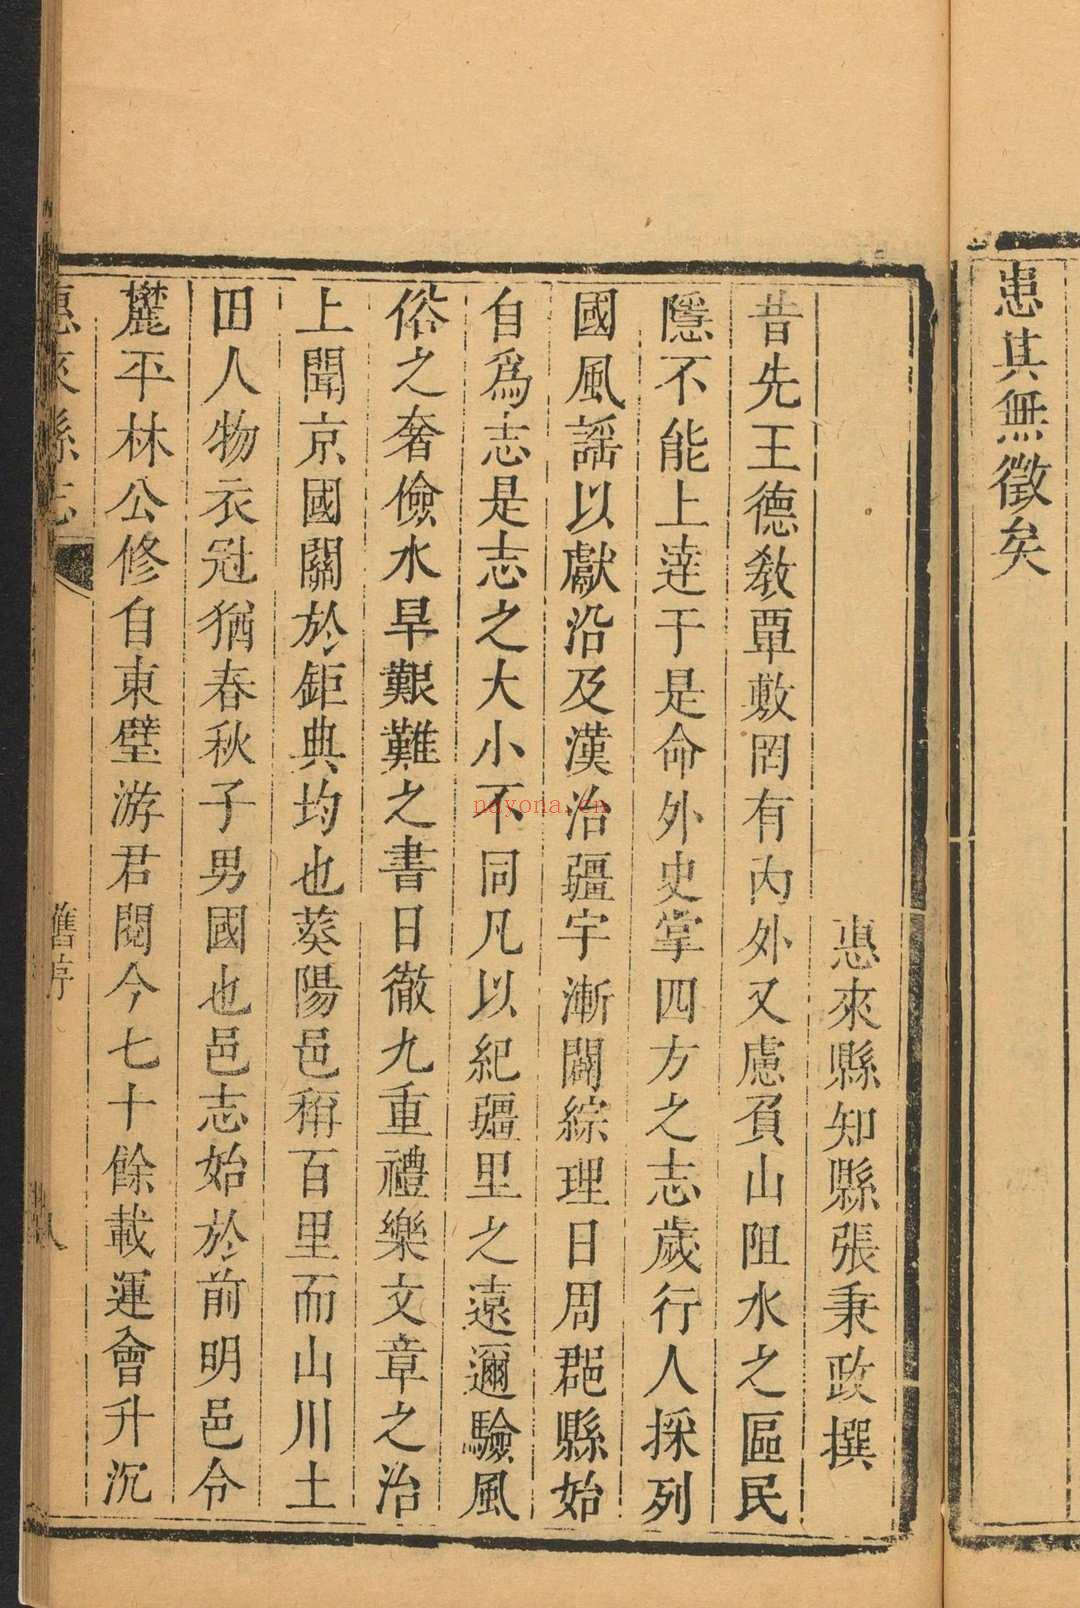 患其無徵矣
惠來縣知縣張秉政撰
昔先王德敎覃敷罔有內外又慮負山阻水之區民
隱不能上達于是命外史掌四方之志歲行人採列
國風謡以獻沿及漢治疆宇漸闢綜理日周郡縣始
自爲志是志之大小不同凡以紀疆里之遠邇驗風
俗之奢儉水旱艱難之書日徹九重禮樂文章之治
上聞京國關於鉅典均也葵陽邑稱百里而山川土
田人物衣冠猶春秋子男國也邑志始於前明邑令
麓平林公修自東壁游君閱今七十餘載運會升沉
惠來縣志
舊序
八
nayona.cn